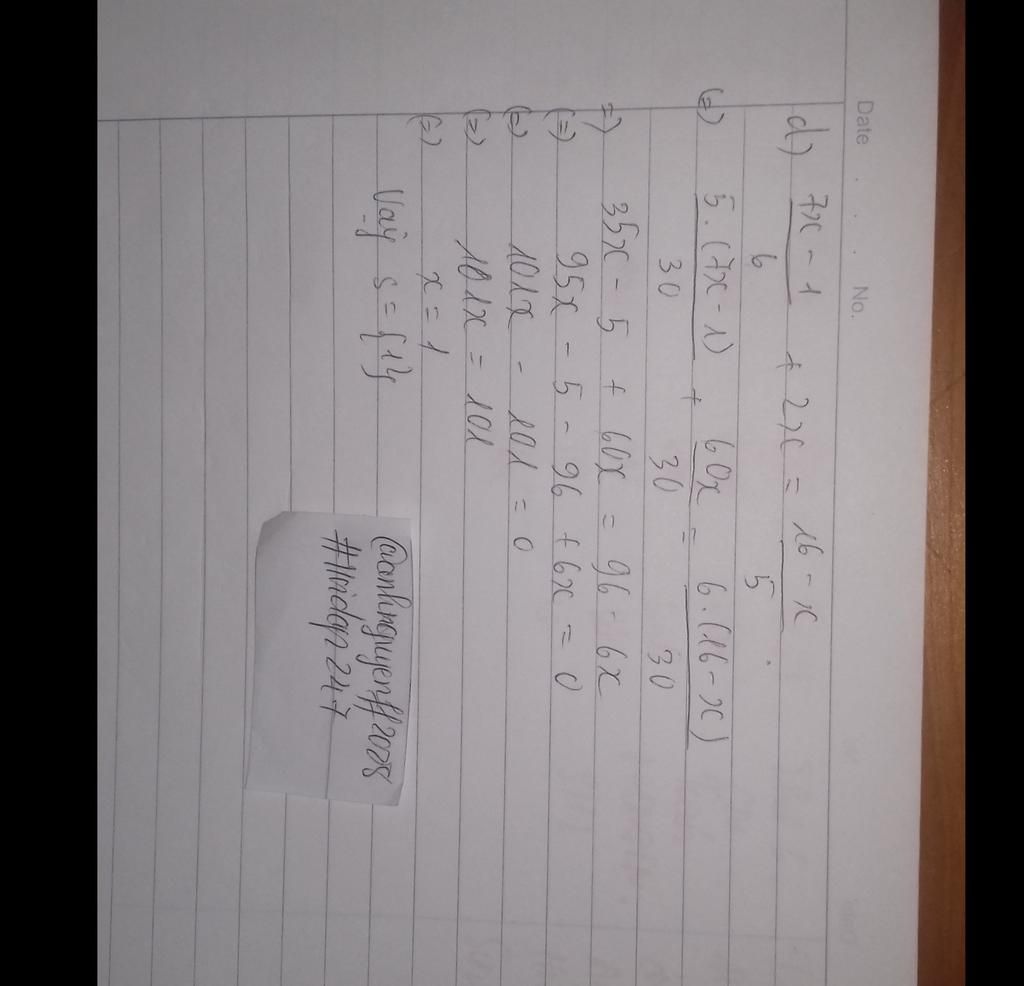 Date . . . No.
d) 7x - 1 / 6 + 2x = 16 - x / 5
(=) 5.(7x - 1) / 30 + 60x / 30 = 6.(16 - x) / 30
=) 35x - 5 + 60x = 96 - 6x
(=) 95x - 5 - 96 + 6x = 0
(=) 101x - 101 = 0
(=) 101x = 101
(=) x = 1
Vậy S = {1}
@oanhnguyenff2008
#Hoidap247